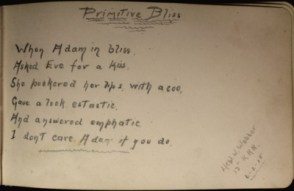 Primitive Bliss
When Adam in bliss
Asked Eve for a kiss.
She puckered her lips with a coo,
Gave a look ecstatic
And answered emphatic
I don't care Adam if you do.